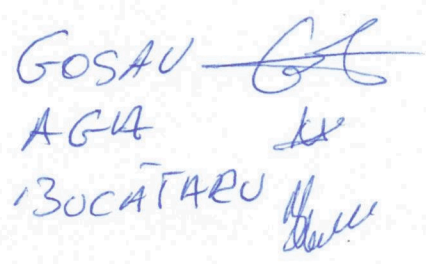 GOSAV
AGIA
BUCĀTARU